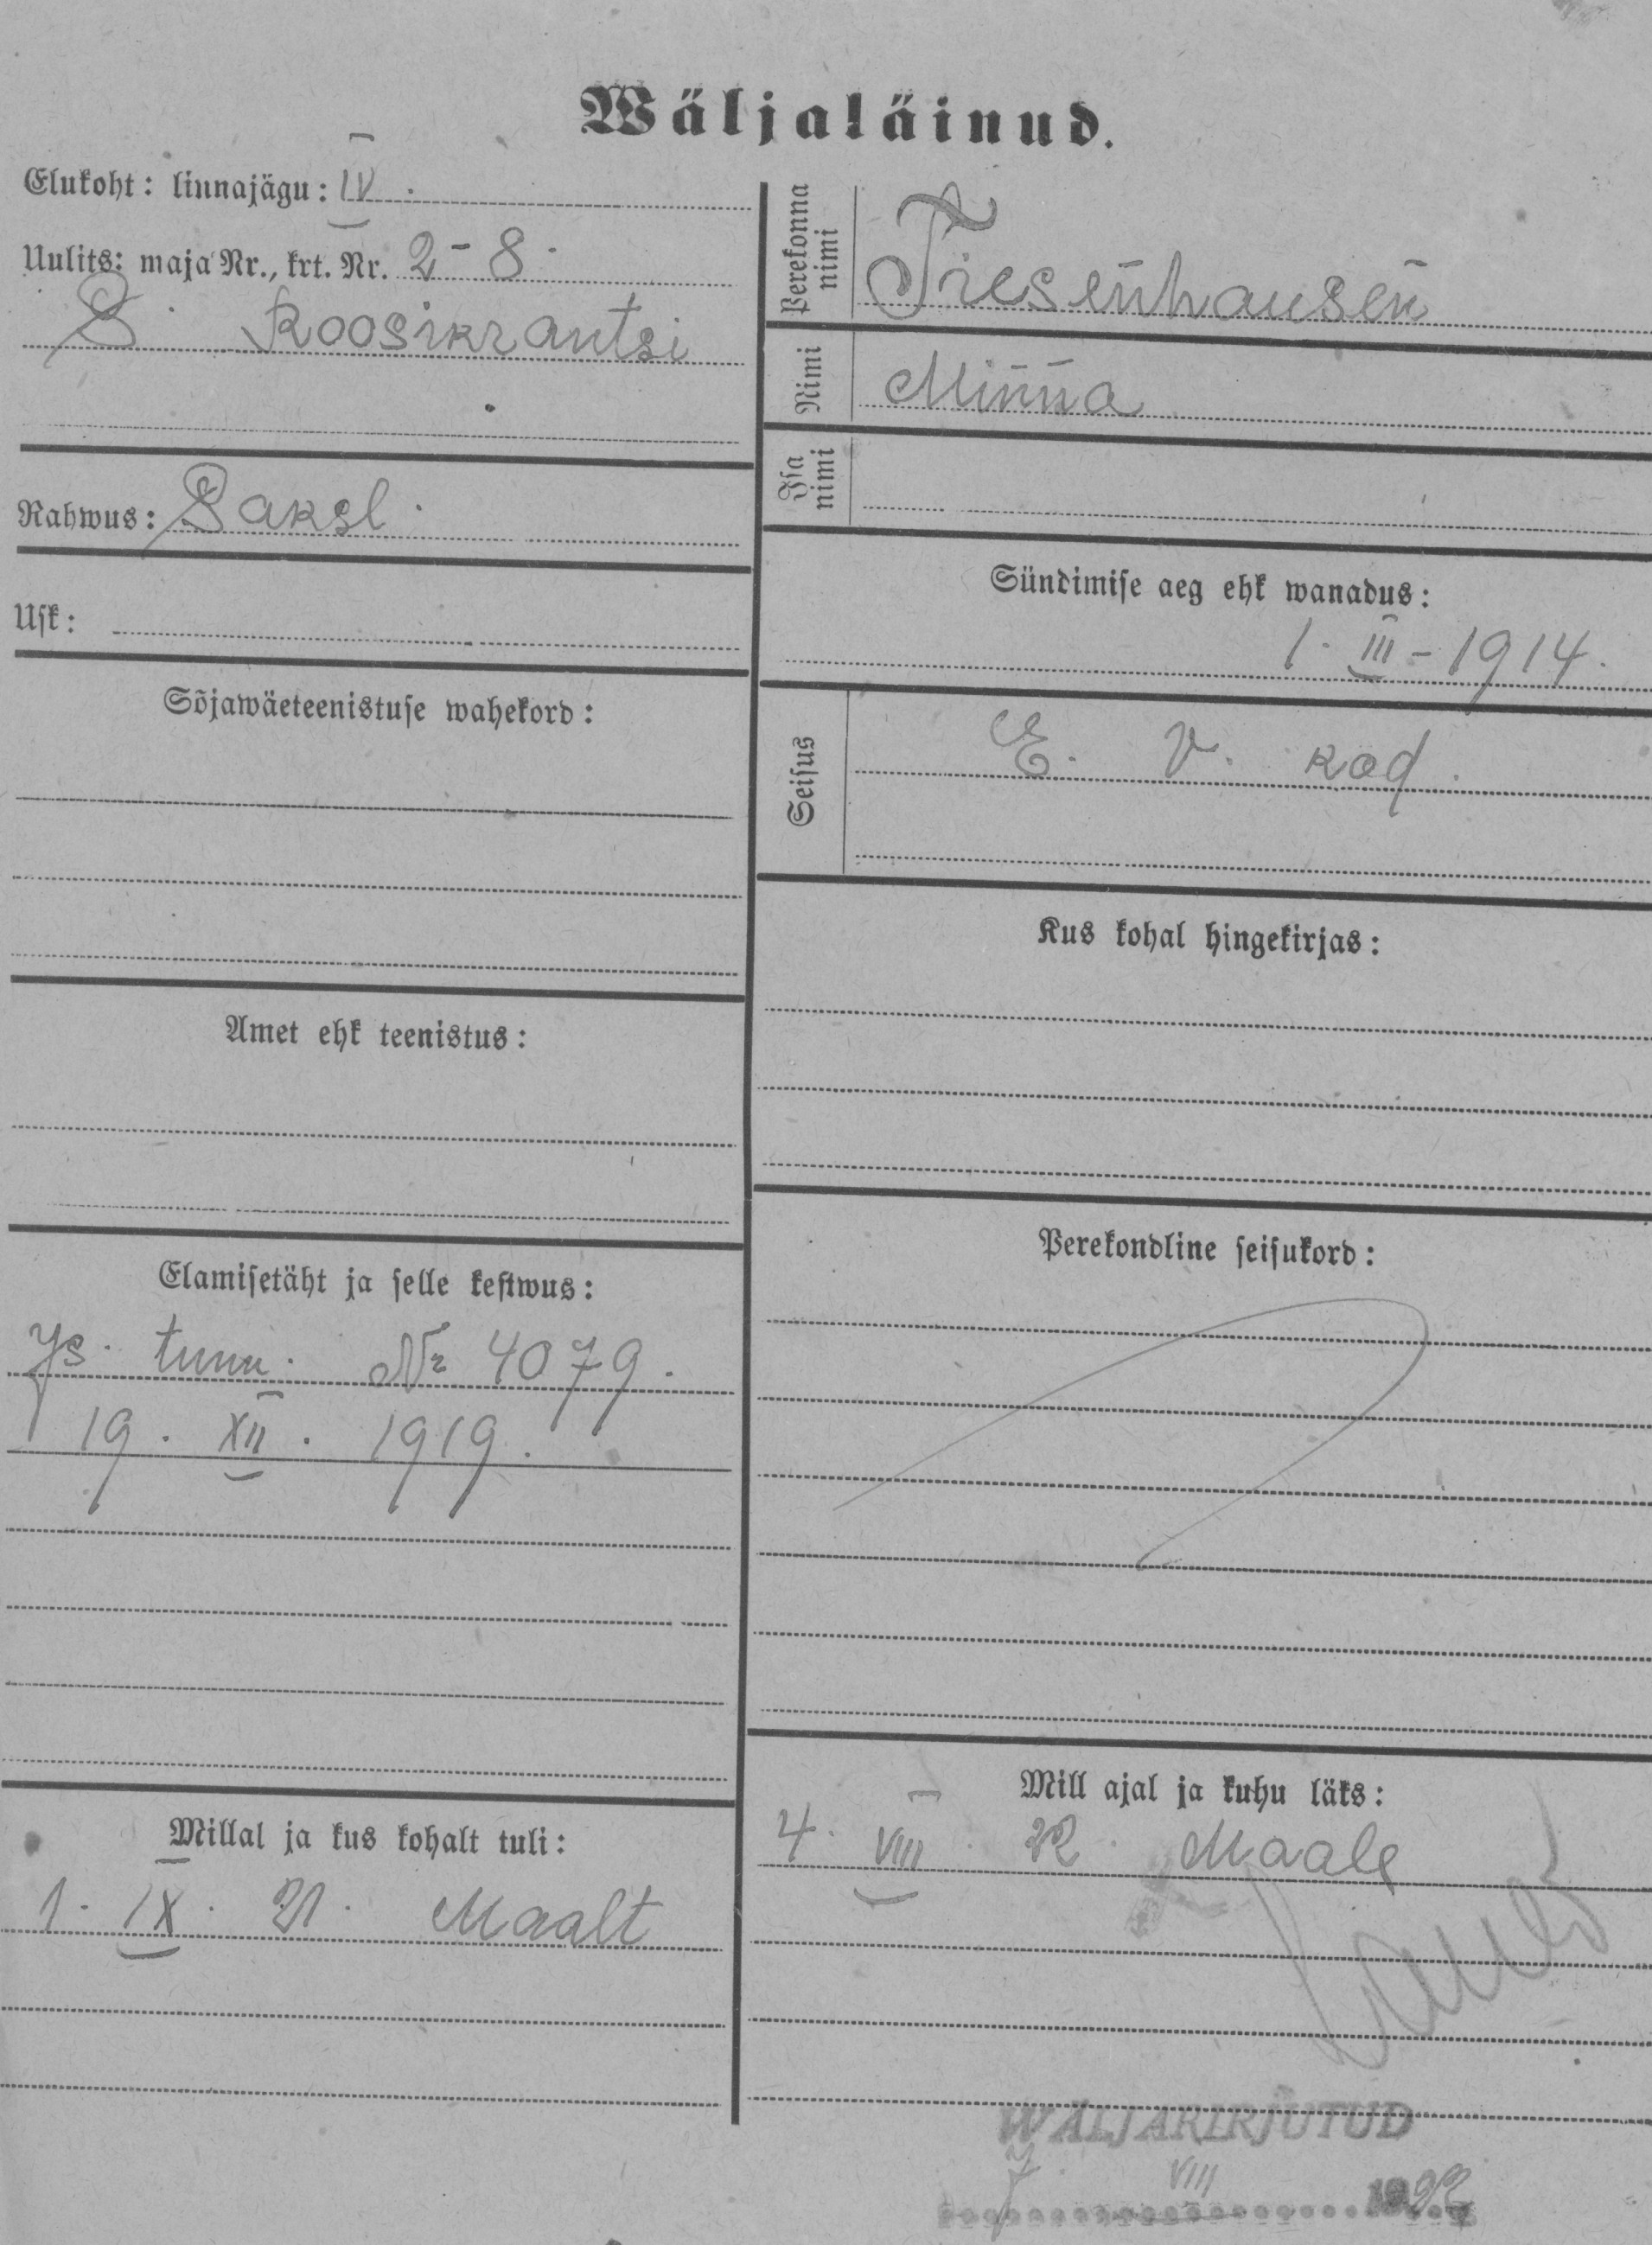 Wäljaläinud.
Elukoht: linnajägu: IV.
Uulits: maja Nr., krt. Nr. 2-8.
S. Roosikrantsi
Rahwus: Saksl.
Usk:
Sõjawäeteenistuse wahekord:
Amet ehk teenistus:
Elamisetäht ja selle kestwus:
Is. tunn. Nr 4079.
19. XII. 1919.
Millal ja kus kohalt tuli:
1. IX. 21. Maalt
Perekonna nimi Tiesenhausen
Nimi Minna
Isa nimi
Sündimise aeg ehk wanadus:
1. III - 1914.
Seisus E. V. kod.
Kus kohal hingekirjas:
Perekondline seisukord:
Mill ajal ja kuhu läks:
4. VIII. 22. Maale
WÄLJAKIRJUTUD
7. VIII 1922